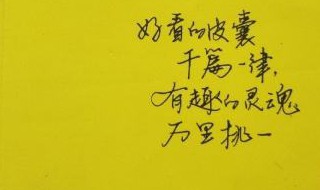 好看的皮囊
千篇一律,
有趣的灵魂
万里挑一